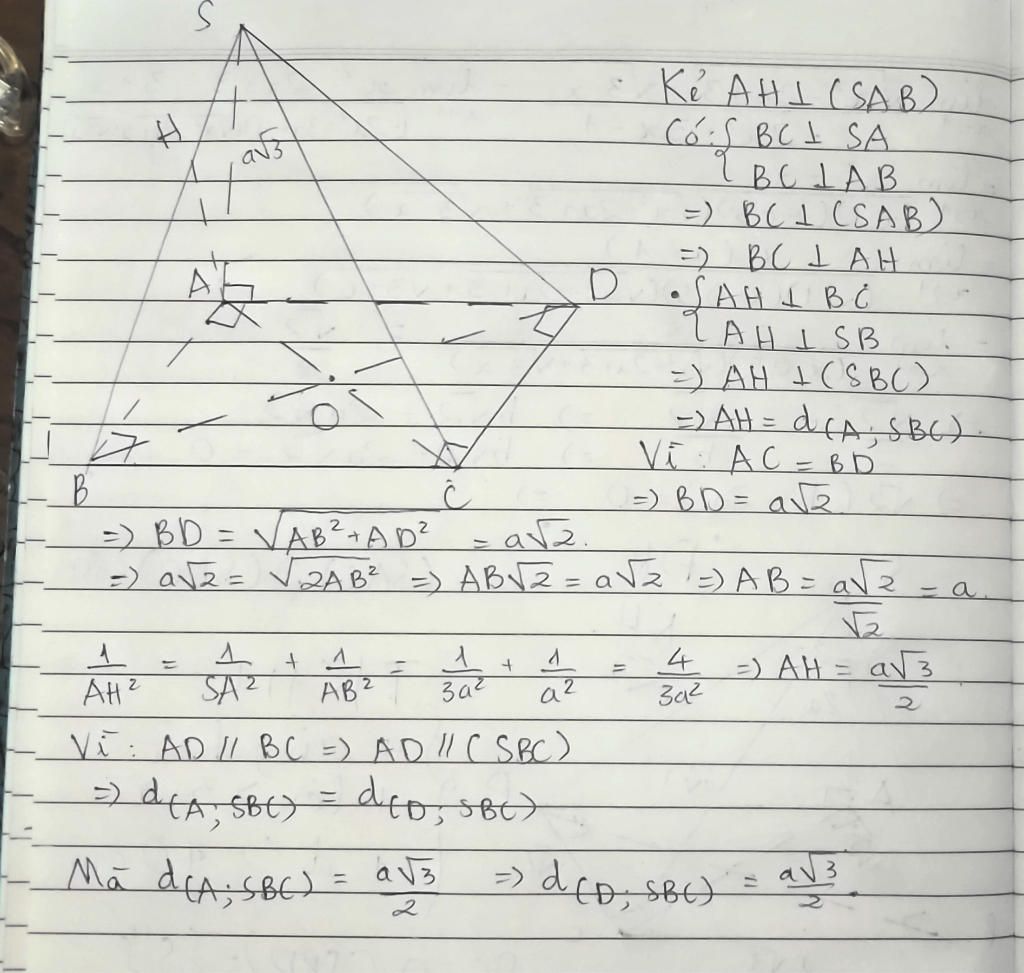 S
H
a√3
A
D
O
B
C
Kẻ AH ⊥ (SAB)
Có: { BC ⊥ SA
BC ⊥ AB
=> BC ⊥ (SAB)
=> BC ⊥ AH
• { AH ⊥ BC
AH ⊥ SB
=> AH ⊥ (SBC)
=> AH = d(A; SBC).
Vì: AC = BD
=> BD = a√2
=> BD = √AB² + AD² = a√2.
=> a√2 = √2AB² => AB√2 = a√2 => AB = a√2/√2 = a.
1/AH² = 1/SA² + 1/AB² = 1/3a² + 1/a² = 4/3a² => AH = a√3/2
Vì: AD // BC => AD // (SBC)
=> d(A; SBC) = d(D; SBC)
Mà d(A; SBC) = a√3/2 => d(D; SBC) = a√3/2.